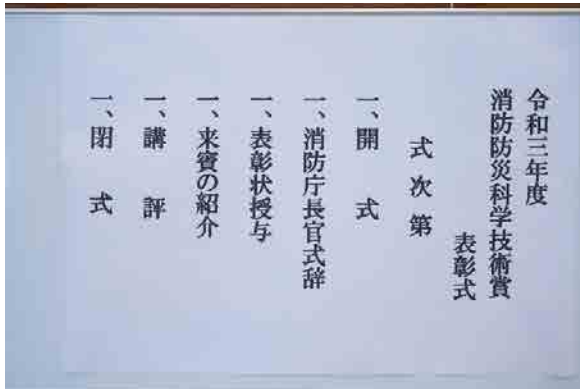 令和三年度
消防防災科学技術賞
表彰式
式次第
一、開式
一、消防庁長官式辞
一、表彰状授与
一、来賓の紹介
一、講評
一、閉式